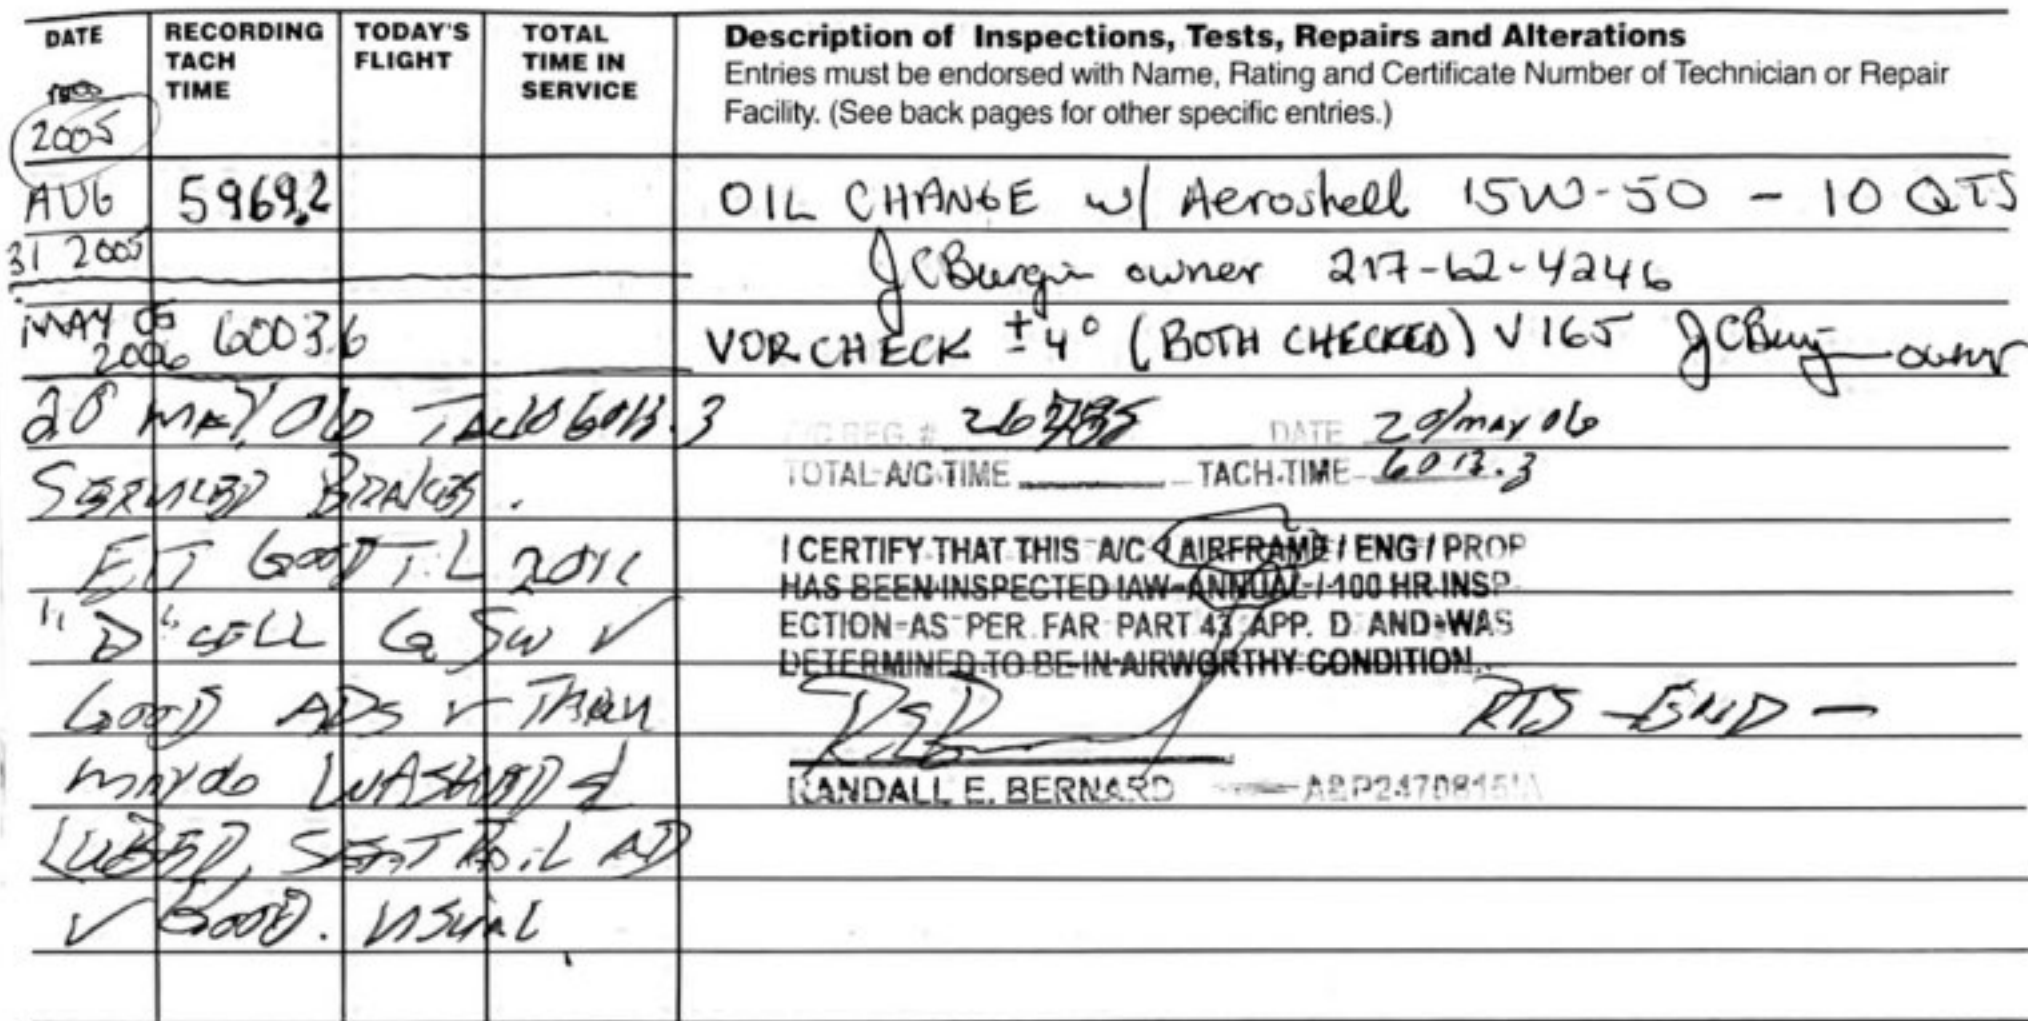 DATE RECORDING TACH TIME TODAY'S FLIGHT TOTAL TIME IN SERVICE Description of Inspections, Tests, Repairs and Alterations
Entries must be endorsed with Name, Rating and Certificate Number of Technician or Repair
Facility. (See back pages for other specific entries.)
2005
AUG 5969.2 OIL CHANGE w/ Aeroshell 15W-50 - 10 QTS
31 2005 JCBurgin owner 217-62-4246
MAY 05 2006 6003.6 VOR CHECK ±4° (BOTH CHECKED) V165 owner
20 MAY 06 TACH 6013.3
SERVICED BRAKES.
ELT GOOD TIL 2011
"D" CELL G SW ✓
GOOD ADS ✓ THRU
MAY 06 WASHED &
LUBED, SEAT RAIL AD
✓ GOOD. VISUAL
A/C REG. # DATE 20/MAY 06
TOTAL A/C TIME TACH TIME 6013.3
I CERTIFY THAT THIS A/C / AIRFRAME / ENG / PROP
HAS BEEN INSPECTED IAW ANNUAL / 100 HR INSP
ECTION AS PER FAR PART 43 APP. D AND WAS
DETERMINED TO BE IN AIRWORTHY CONDITION.
RTS -END-
RANDALL E. BERNARD